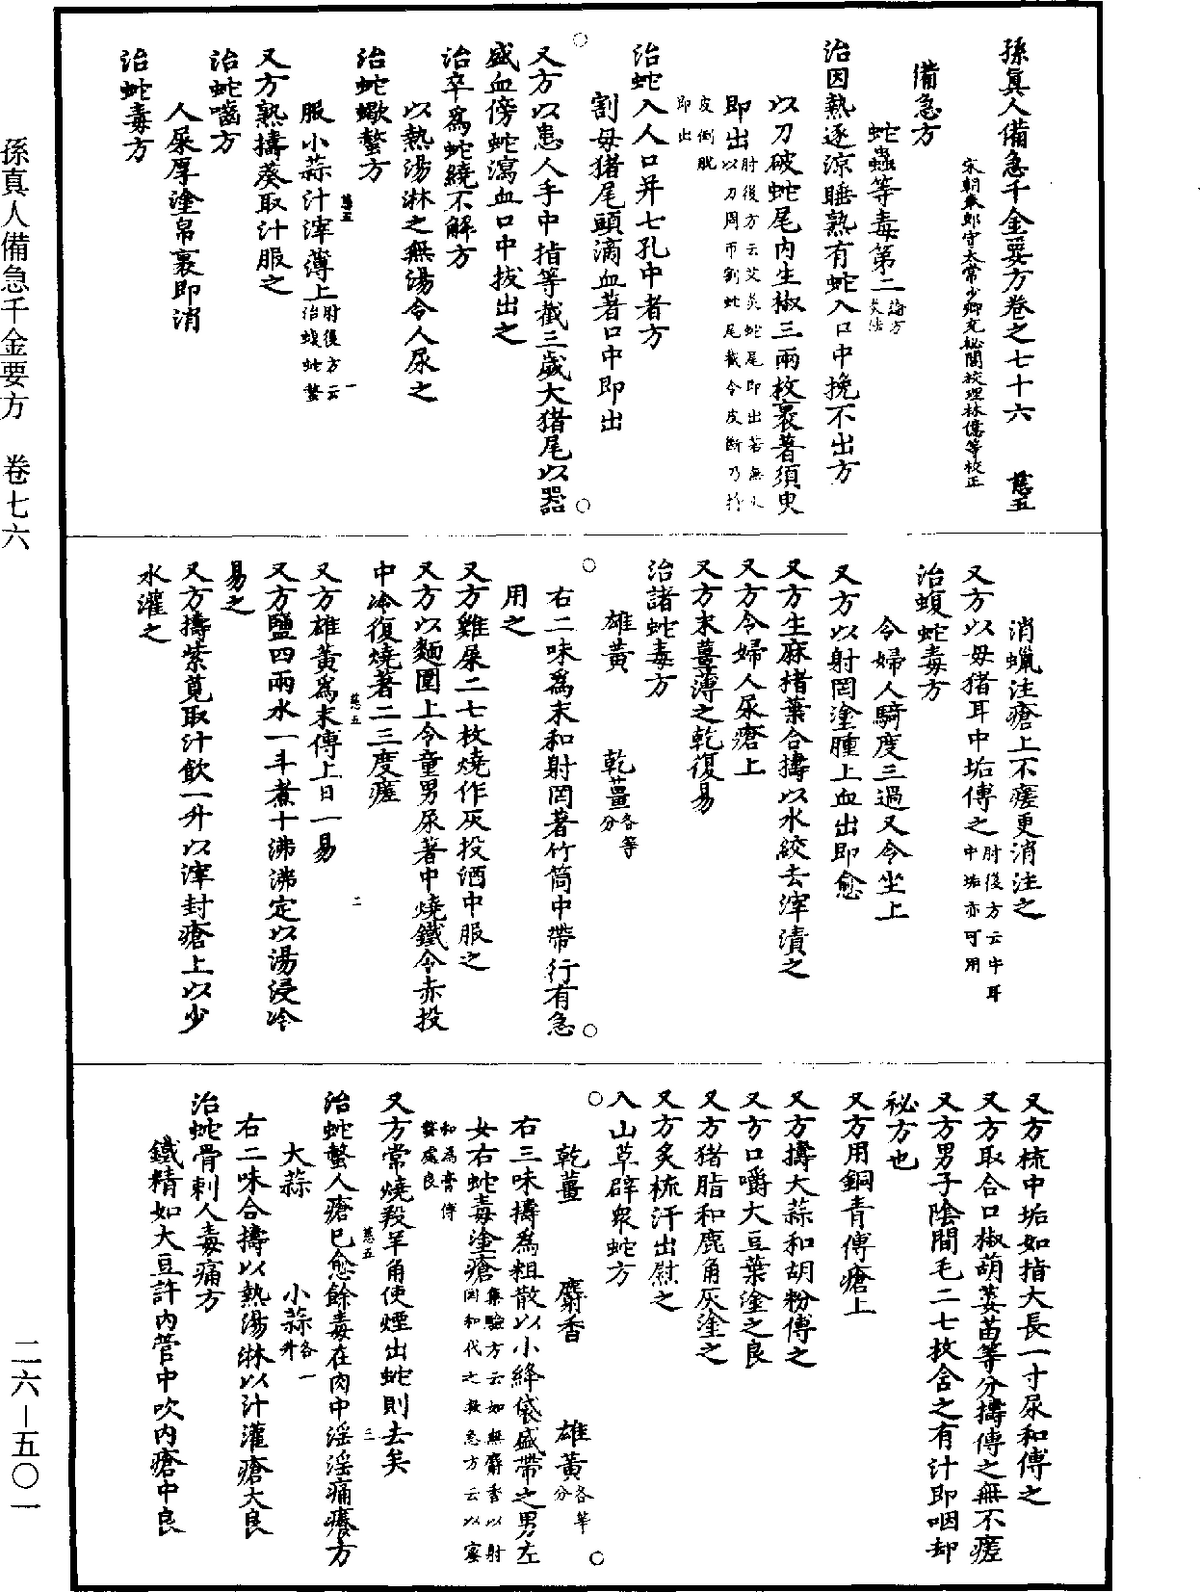 孫真人備急千金要方 卷七六
二六－五〇一
孫真人備急千金要方卷之七十六 慈五
宋朝奉郎守太常少卿充秘閣校理林億等校正
備急方
蛇蟲等毒第二論方灸法
治因熱逐涼睡熟有蛇入口中挽不出方
以刀破蛇尾內生椒三兩枚裹著須臾
即出肘後方云艾灸蛇尾即出若無火以刀周帀割蛇尾截令皮斷乃捋
皮倒脫即出
治蛇入人口并七孔中者方
割母猪尾頭滴血著口中即出
又方以患人手中指等截三歲大猪尾以器
盛血傍蛇瀉血口中拔出之
治卒為蛇繞不解方
以熱湯淋之無湯令人尿之
治蛇蠍螫方
慈五 一
服小蒜汁滓薄上肘後方云治蝮蛇螫
又方熟擣葵取汁服之
治蛇嚙方
人屎厚塗帛裹即消
治蛇毒方
消蠟注瘡上不瘥更消注之
又方以母猪耳中垢傅之肘後方云牛耳中垢亦可用
治蝮蛇毒方
令婦人騎度三過又令坐上
又方以射罔塗腫上血出即愈
又方生麻楮葉合擣以水絞去滓漬之
又方令婦人尿瘡上
又方末薑薄之乾復易
治諸蛇毒方
雄黃 乾薑各等分
右二味為末和射罔著竹筒中帶行有急
用之
又方雞屎二七枚燒作灰投酒中服之
又方以麵圍上令童男尿著中燒鐵令赤投
中冷復燒著二三度瘥
慈五 二
又方雄黃為末傅上日一易
又方鹽四兩水一斗煮十沸沸定以湯浸冷
易之
又方擣紫莧取汁飲一升以滓封瘡上以少
水灌之
又方梳中垢如指大長一寸尿和傅之
又方取合口椒葫荽苗等分擣傅之無不瘥
又方男子陰間毛二七枚含之有汁即咽卻
祕方也
又方用銅青傅瘡上
又方擣大蒜和胡粉傅之
又方口嚼大豆葉塗之良
又方猪脂和鹿角灰塗之
又方炙梳汗出熨之
入山草辟衆蛇方
乾薑 麝香 雄黃各等分
右三味擣為粗散以小絳袋盛帶之男左
女右蛇毒塗瘡集驗方云如無麝香以射罔和代之救急方云以蜜
和為膏傅螫處良
又方常燒羖羊角使煙出蛇則去矣
慈五 三
治蛇螫人瘡已愈餘毒在肉中淫淫痛癢方
大蒜 小蒜各一升
右二味合擣以熱湯淋以汁灌瘡大良
治蛇骨刺人毒痛方
鐵精如大豆許內管中吹內瘡中良